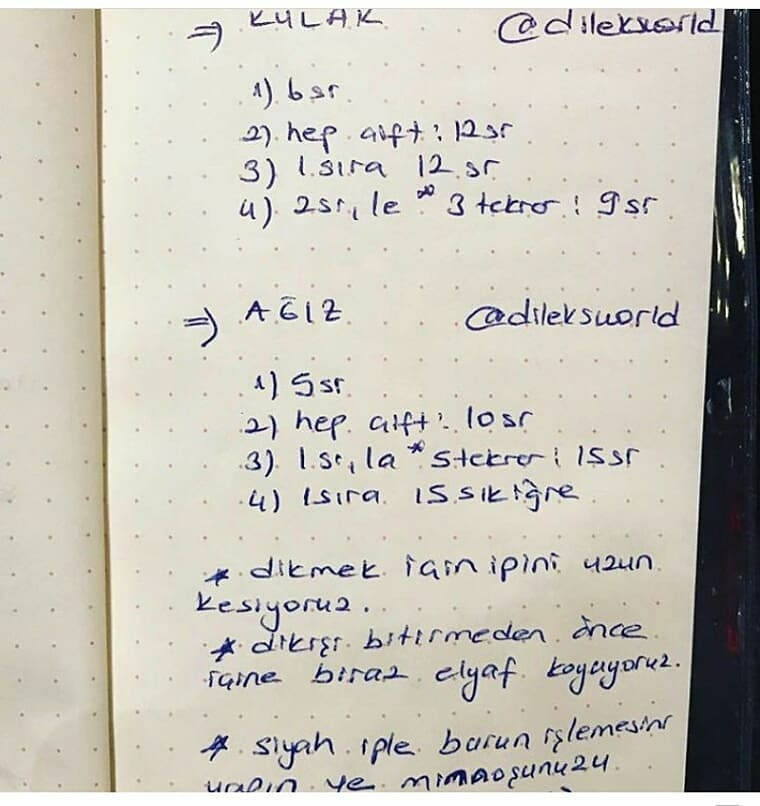 ⇒ KULAK @dileksworld
1) 6 sr
2) hep çift : 12 sr
3) 1 sıra 12 sr
4) 2sr, 1e * 3 tekrar : 9 sr
⇒ AĞIZ @dileksworld
1) 5 sr
2) hep çift : 10 sr
3) 1 sr, 1a * 5 tekrar : 15 sr
4) 1 sıra 15 sık iğne
* dikmek için ipini uzun
kesiyoruz.
* dikişi bitirmeden önce
içine biraz elyaf koyuyoruz.
* siyah iple burun işlemesini
yapın ve